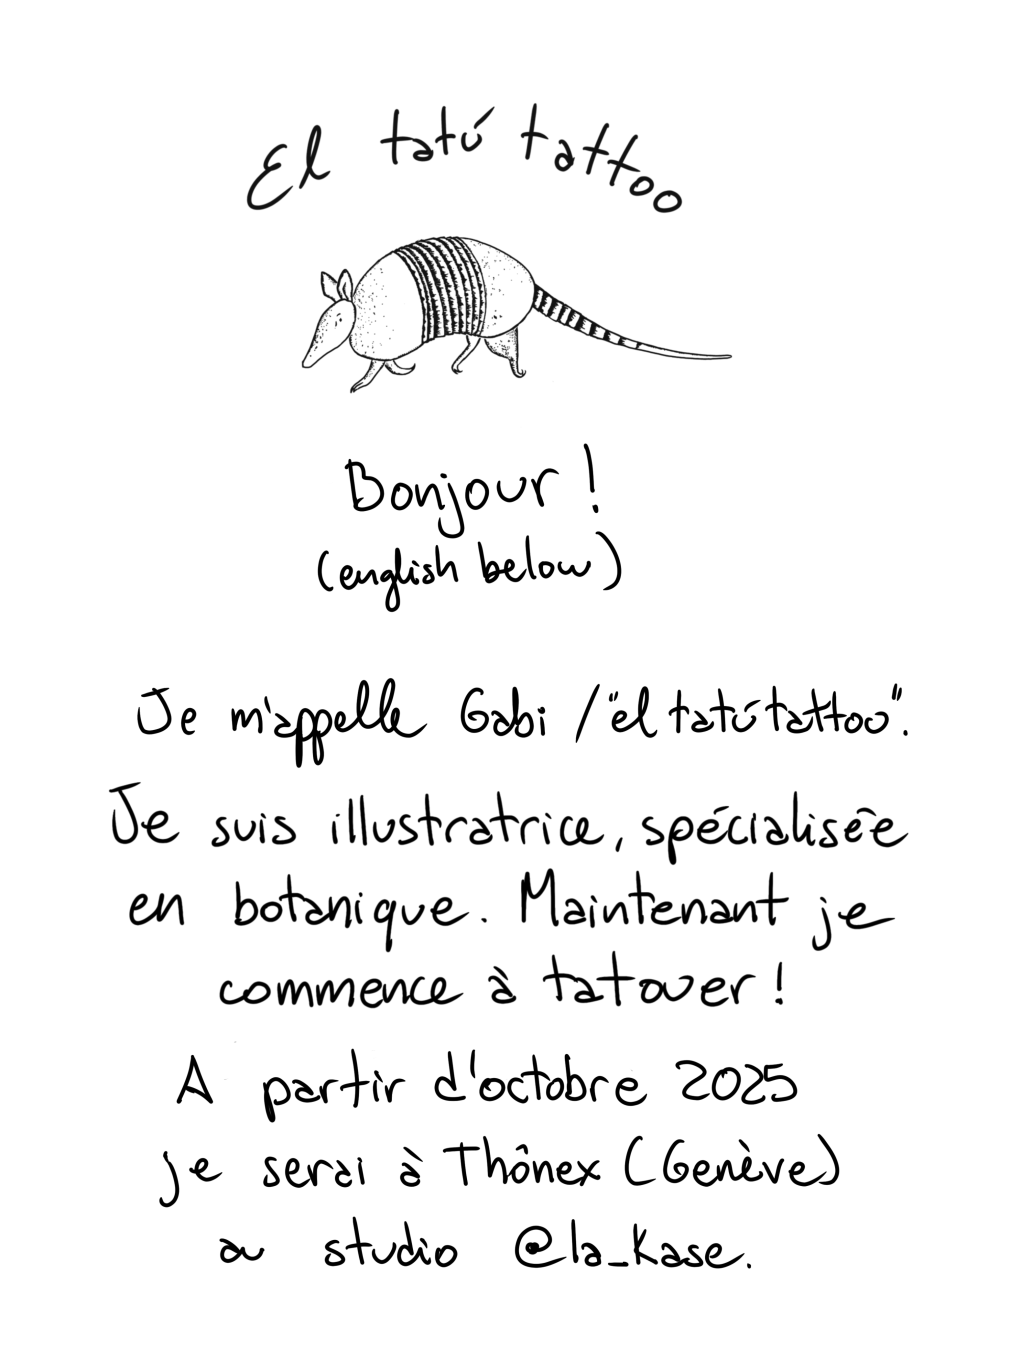 El tatú tattoo
Bonjour !
(english below)
Je m'appelle Gabi / "el tatú tattoo".
Je suis illustratrice, spécialisée
en botanique. Maintenant je
commence à tatouer !
A partir d'octobre 2025
je serai à Thônex (Genève)
au studio @la_Kase.